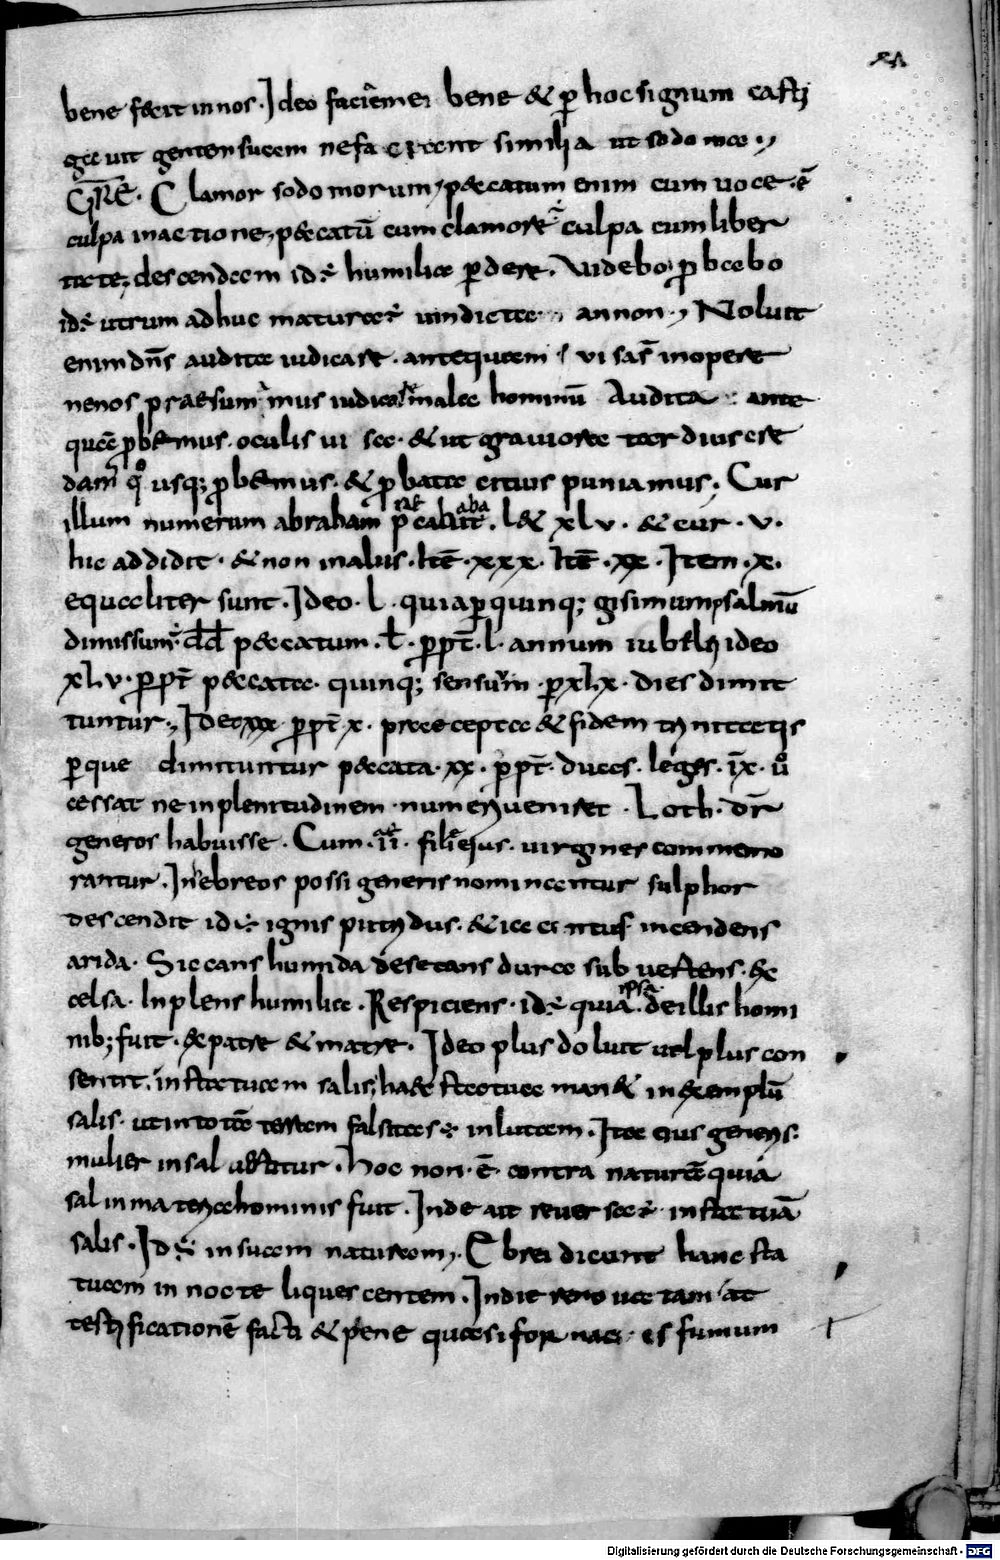 bene fecit in nos. Ideo faciem̄ ei bene & ꝑ hoc signum casti
gauit gentem suam nefa similia ut sodomae
GRE. Clamor sodomorum, peccatum enim cum uoce. ē
culpa in actione, peccatū cum clamore culpa cum liber
tate, descendam id humilia perdere. Videbo ꝓbabo
id utrum adhuc matura uindicta annon. Noluit
enim dn̄s audita iudicare. antequam uisa in opere
ne nos praesumimus iudicare mala hominū Audita ante
quā ꝓbemus. oculis uisa. & ut grauiora tar dius cre
dam usq; ꝓbemus. & ꝓbata citius puniamus. Cur
illum numerum abraham l& xlv. & cur. v.
hic addidit. & non malus. Itē. xxx. Itē. xx. Item. x.
equaliter sunt. Ideo. l. quia ꝑ quinq; gisimum psalmū
dimissum dd peccatum. ł. ꝓpt̄. l. annum iubelei ideo
xlv. ꝓpt̄ peccata. quinq; sensuum. ꝑ xlx. dies dimit
tuntur. Ideo xxx ꝓpt̄ x. praecepta & fidem trinitatis
ꝑ que dimituntur peccata. xx. ꝓpt̄. duas. leges. ix. ū
cessat ne in plenitudinem numeri ueniret. Loth. dr̄
generos habuisse. Cum. ii. filie ejus. uirgines commemo
rantur. In ebreos possi generis nominantur sulphor
descendit id ignis putridus. & iacentus incendens
arida. Siccans humida desecans dura sub uertens. ex
celsa. Inplens humilia. Respiciens. id quia ipsa de illis homi
nib; fuit. ex patre & matre. Ideo plus doluit uel plus con
sentit. in statuam salis, haec statua man& in exemplū
salis. ut in totā terram falsitas in lutem. Ita eius generis
mulier in sal uertitur. Hoc non. ē. contra naturā quia
sal in materia hominis fuit. Inde ait reuersa in statuā
salis. Id in suam naturam. Ebrei dicunt hanc sta
tuam in nocte liquescentem. Indie renouatam at
testificationē facti & pene quasi fornacis fumum